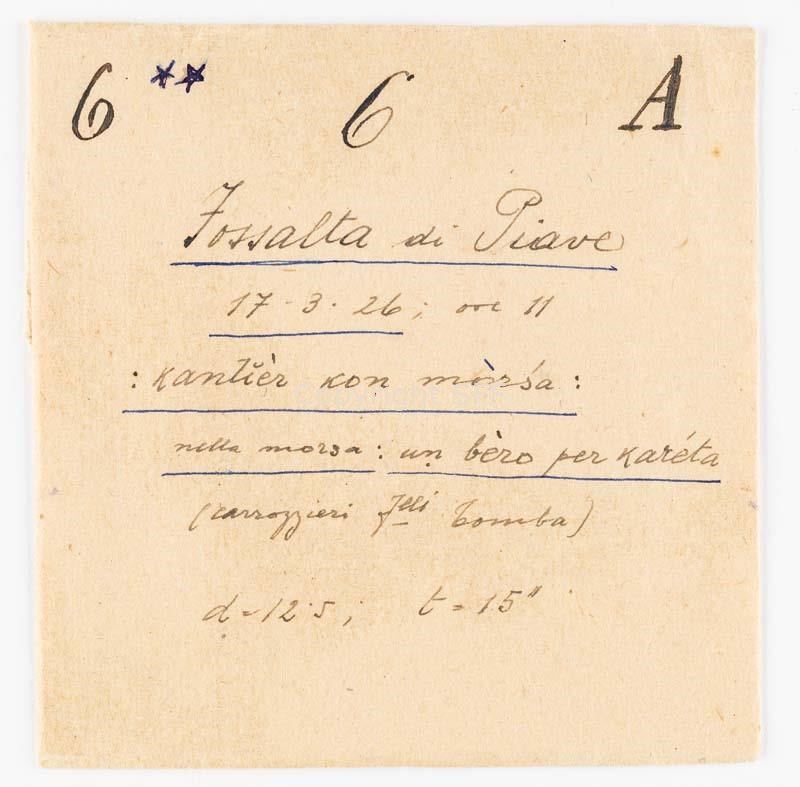 6 ** 6 A
Fossalta di Piave
17-3-26; ore 11
: kantièr kon mòrsa :
nella morsa : un bèro per karéta
(carrozzieri F.lli Bomba)
d = 12.5; t = 15"